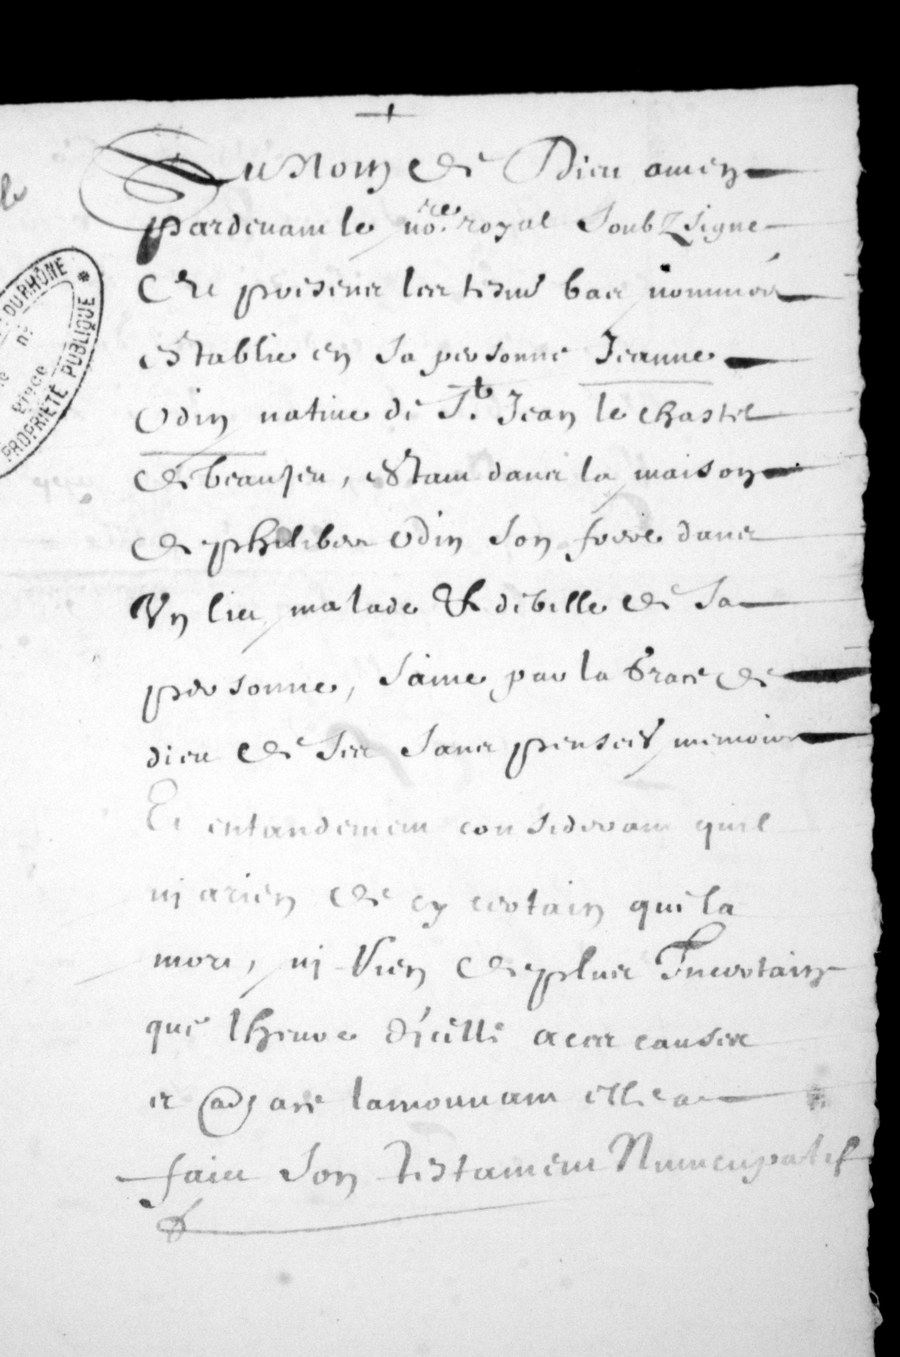 Au Nom de Dieu amen
pardevant le nore royal Soubzsigne
Et presence les tesms bas nommés
establie en sa personne Jeanne
Odin native de St Jean le chastel
de beaujeu, estant dans la maison
de philibert Odin son frere dans
Un lict malade & debille de sa
personne, saine par la Grace de
dieu de ses sens pensees memoire
Et entandement considerant quil
nj a rien de cy certain que la
mort, nj Rien de plus Incertain
que lheure d'icelle a ces causes
et lamouvant elle a
faict son testament Nuncupatif
DU RHÔNE
PROPRIÉTÉ PUBLIQUE